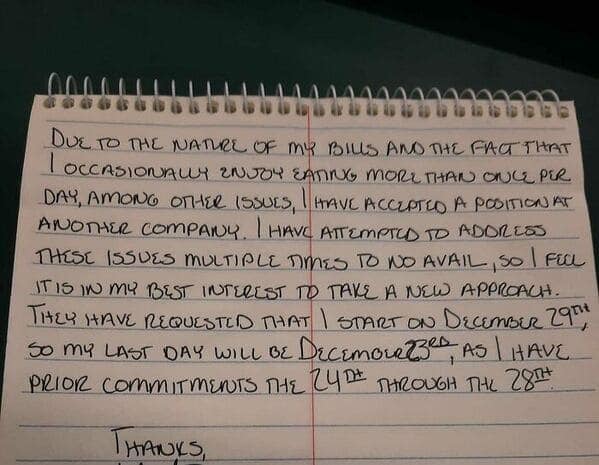 DUE TO THE NATURE OF MY BILLS AND THE FACT THAT
I OCCASIONALLY ENJOY EATING MORE THAN ONCE PER
DAY, AMONG OTHER ISSUES, I HAVE ACCEPTED A POSITION AT
ANOTHER COMPANY. I HAVE ATTEMPTED TO ADDRESS
THESE ISSUES MULTIPLE TIMES TO NO AVAIL, SO I FEEL
IT IS IN MY BEST INTEREST TO TAKE A NEW APPROACH.
THEY HAVE REQUESTED THAT I START ON DECEMBER 29TH,
SO MY LAST DAY WILL BE DECEMBER 23RD, AS I HAVE
PRIOR COMMITMENTS THE 24TH THROUGH THE 28TH.
THANKS,